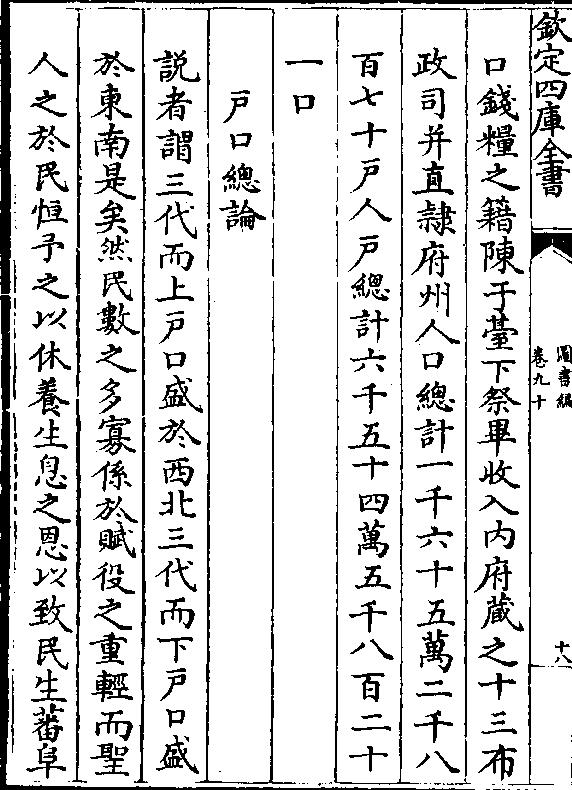 欽定四庫全書
圖書編
卷九十
十八
口錢糧之籍陳于臺下祭畢收入内府蔵之十三布
政司并直隷府州人口總計一千六十五萬二千八
百七十戸人戸總計六千五十四萬五千八百二十
一口
戸口總論
説者謂三代而上戸口盛於西北三代而下戸口盛
於東南是矣然民數之多寡係於賦役之重輕而聖
人之於民恒予之以休養生息之恩以致民生蕃阜